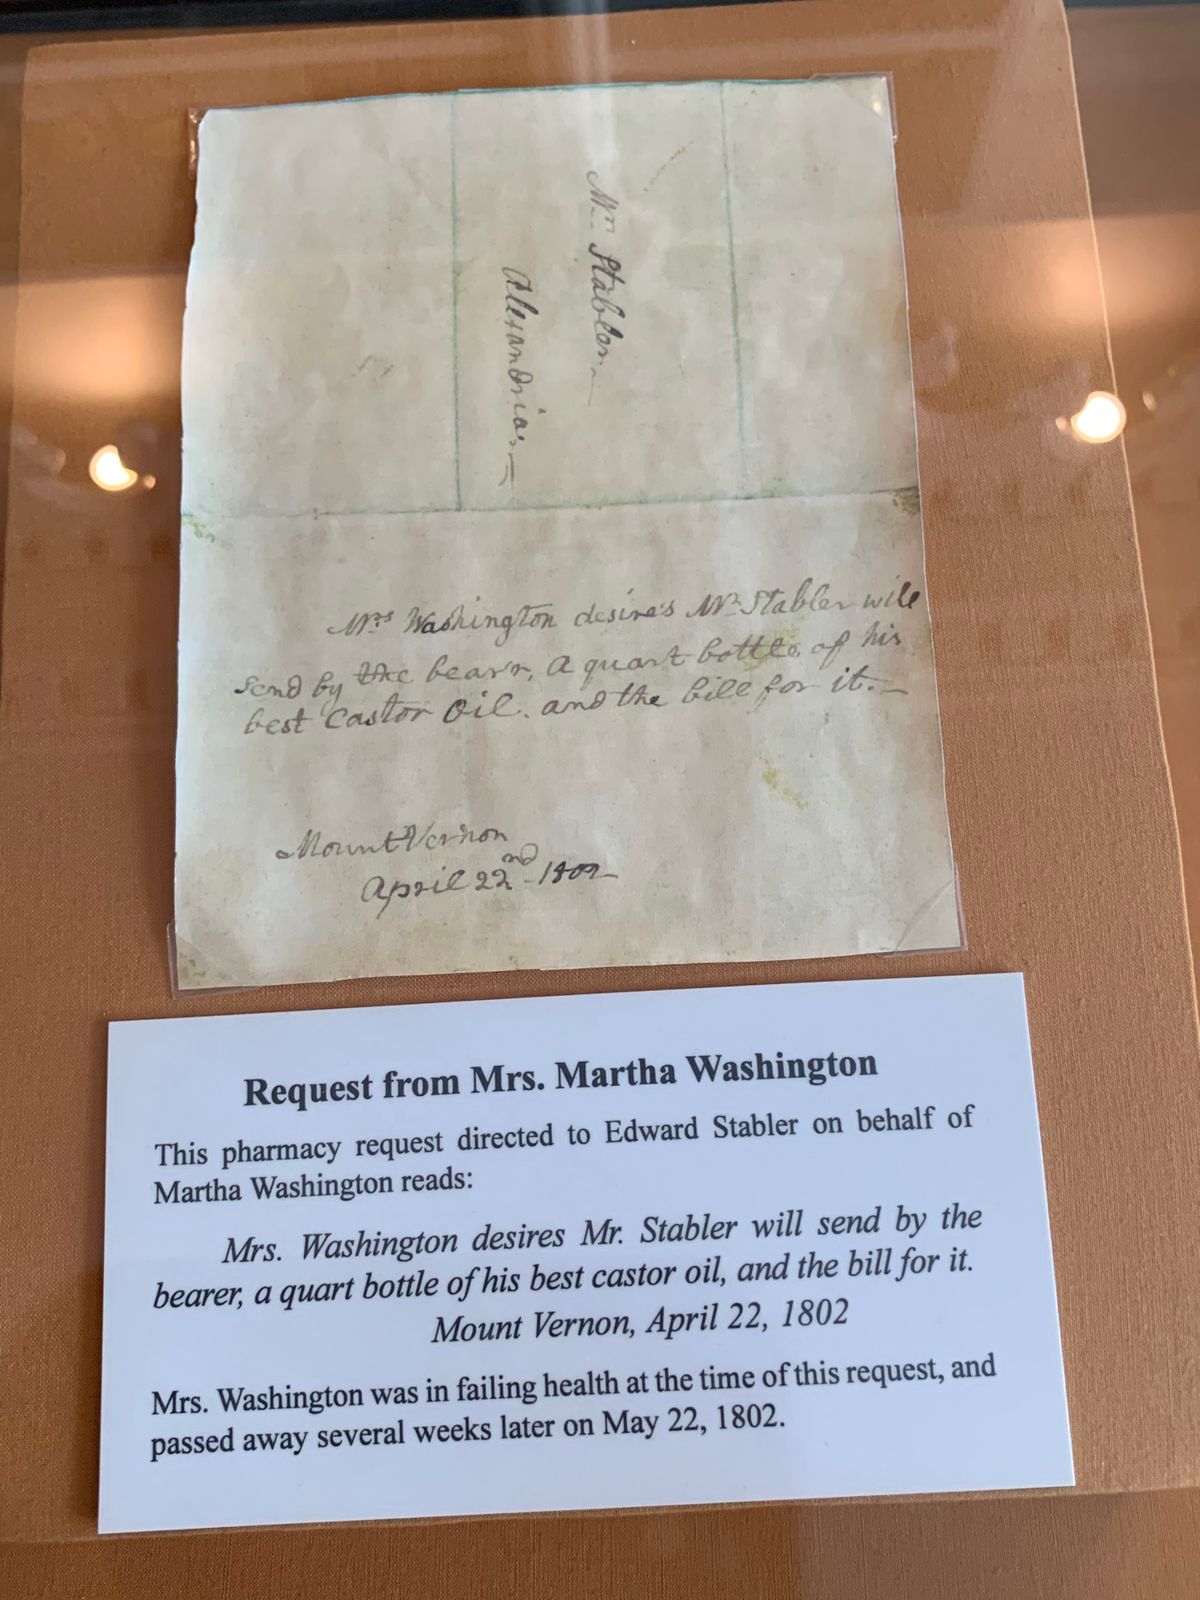 Mr. Stabler
Alexandria.
Mrs Washington desire's Mr. Stabler will
send by the bearr, a quart bottle of his
best Castor Oil. and the bill for it.
Mount Vernon
April 22nd 1802
Request from Mrs. Martha Washington
This pharmacy request directed to Edward Stabler on behalf of
Martha Washington reads:
Mrs. Washington desires Mr. Stabler will send by the
bearer, a quart bottle of his best castor oil, and the bill for it.
Mount Vernon, April 22, 1802
Mrs. Washington was in failing health at the time of this request, and
passed away several weeks later on May 22, 1802.